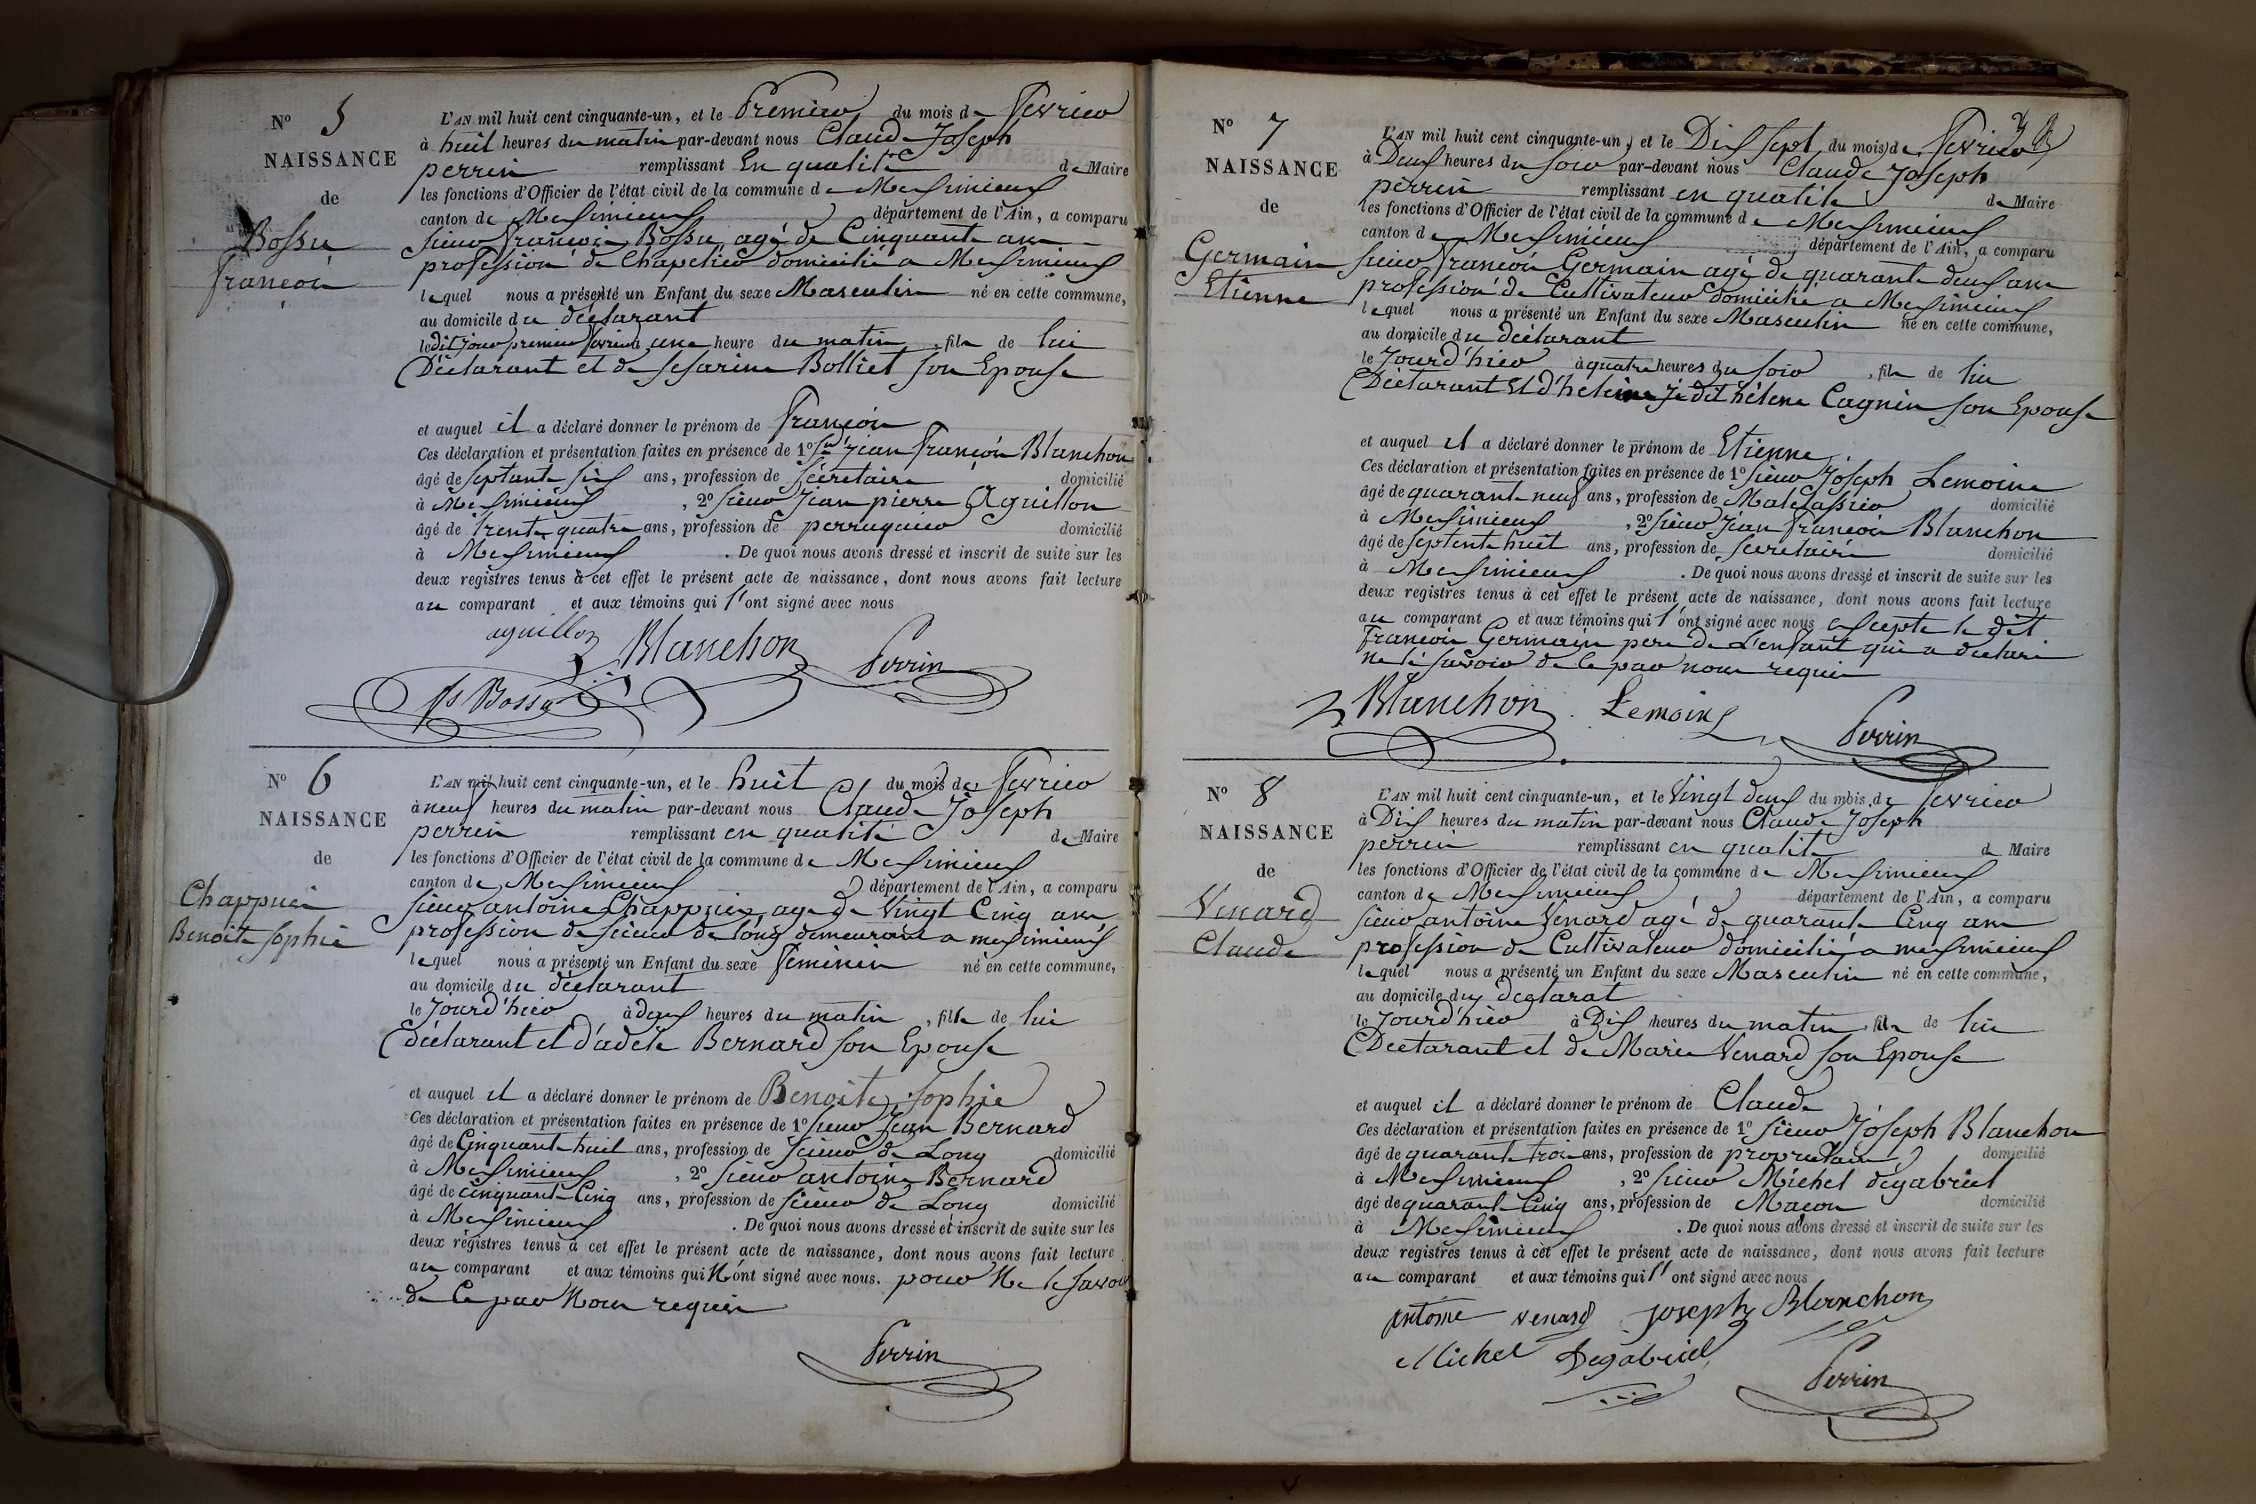 N° 5
NAISSANCE
de
Bossu
françois
L'AN mil huit cent cinquante-un, et le Premier du mois de fevrier
à huit heures du matin par-devant nous Claude Joseph
perrin remplissant En qualité de Maire
les fonctions d'Officier de l'état civil de la commune de Meximieux
canton de Meximieux département de l'Ain, a comparu
sieur françois Bossu agé de Cinquante ans
profession de Chapelier domicilié a Meximieux
lequel nous a présenté un Enfant du sexe Masculin né en cette commune,
au domicile du déclarant
le dit jour premier fevrier à une heure du matin, fils de lui
Déclarant et de Sesarine Bolliet son Epouse
et auquel il a déclaré donner le prénom de françois
Ces déclaration et présentation faites en présence de 1° Sr jean françois Blanchon
âgé de septante six ans, profession de sécretaire domicilié
à Meximieux, 2° sieur jean pierre Aguillon
âgé de trente quatre ans, profession de perruquier domicilié
à Meximieux. De quoi nous avons dressé et inscrit de suite sur les
deux registres tenus à cet effet le présent acte de naissance, dont nous avons fait lecture
au comparant et aux témoins qui l'ont signé avec nous
aguillon Blanchon Perrin
fs Bossu
N° 6
NAISSANCE
de
Chappuis
Benoite sophie
L'AN mil huit cent cinquante-un, et le huit du mois de fevrier
à neuf heures du matin par-devant nous Claude Joseph
perrin remplissant en qualité de Maire
les fonctions d'Officier de l'état civil de la commune de Meximieux
canton de Meximieux département de l'Ain, a comparu
sieur antoine Chappuis age de Vingt Cinq ans
profession de sieur de long demeurant a meximieux
lequel nous a présenté un Enfant du sexe feminin né en cette commune,
au domicile du déclarant
le jourd'hier à deux heures du matin, fille de lui
déclarant et d'adèle Bernard son Epouse
et auquel il a déclaré donner le prénom de Benoite Sophie
Ces déclaration et présentation faites en présence de 1° sieur Jean Bernard
âgé de Cinquante huit ans, profession de sieur de Long domicilié
à Meximieux, 2° sieur antoine Bernard
âgé de cinquante Cinq ans, profession de sieur de Long domicilié
à Meximieux. De quoi nous avons dressé et inscrit de suite sur les
deux registres tenus à cet effet le présent acte de naissance, dont nous avons fait lecture
au comparant et aux témoins qui N'ont signé avec nous. pour Ne le savoir
de Ce par Nous requis
Perrin
N° 7
NAISSANCE
de
Germain
Etienne
L'AN mil huit cent cinquante-un, et le Dix sept du mois de fevrier
à Deux heures du soir par-devant nous Claude Joseph
perrin remplissant en qualité de Maire
les fonctions d'Officier de l'état civil de la commune de Meximieux
canton de Meximieux département de l'Ain, a comparu
sieur françois Germain agé de quarante deux ans
profession de Cultivateur domicilié a Meximieux
lequel nous a présenté un Enfant du sexe Masculin né en cette commune,
au domicile du déclarant
le jourd'hier à quatre heures du soir, fils de lui
Déclarant Et d'heleine je dit hélene Cagnin son Epouse
et auquel il a déclaré donner le prénom de Etienne
Ces déclaration et présentation faites en présence de 1° sieur Joseph Lemoine
âgé de quarante neuf ans, profession de Matelassier domicilié
à Meximieux, 2° sieur jean françois Blanchon
âgé de septente huit ans, profession de secretaire domicilié
à Meximieux. De quoi nous avons dressé et inscrit de suite sur les
deux registres tenus à cet effet le présent acte de naissance, dont nous avons fait lecture
au comparant et aux témoins qui l'ont signé avec nous excepte le dit
françois Germain pere de L'enfant qui a declaré
ne le savoir de Ce par nous requis
Blanchon Lemoine Perrin
N° 8
NAISSANCE
de
Venard
Claude
L'AN mil huit cent cinquante-un, et le Vingt deux du mois de fevrier
à Dix heures du matin par-devant nous Claude Joseph
perrin remplissant en qualité de Maire
les fonctions d'Officier de l'état civil de la commune de Meximieux
canton de Meximieux département de l'Ain, a comparu
sieur antoine Venard agé de quarante Cinq ans
profession de Cultivateur domicilié a meximieux
lequel nous a présenté un Enfant du sexe Masculin né en cette commune,
au domicile du declarat
le jourd'hier à Dix heures du matin, fils de lui
Déclarant et de Marie Venard son Epouse
et auquel il a déclaré donner le prénom de Claude
Ces déclaration et présentation faites en présence de 1° sieur Joseph Blanchon
âgé de quarante trois ans, profession de proprietaire domicilié
à Meximieux, 2° sieur Michel dégabriel
âgé de quarante Cinq ans, profession de Maçon domicilié
à Meximieux. De quoi nous avons dressé et inscrit de suite sur les
deux registres tenus à cet effet le présent acte de naissance, dont nous avons fait lecture
au comparant et aux témoins qui l'ont signé avec nous
antoine venard joseph Blanchon
Michel Degabriel
Perrin